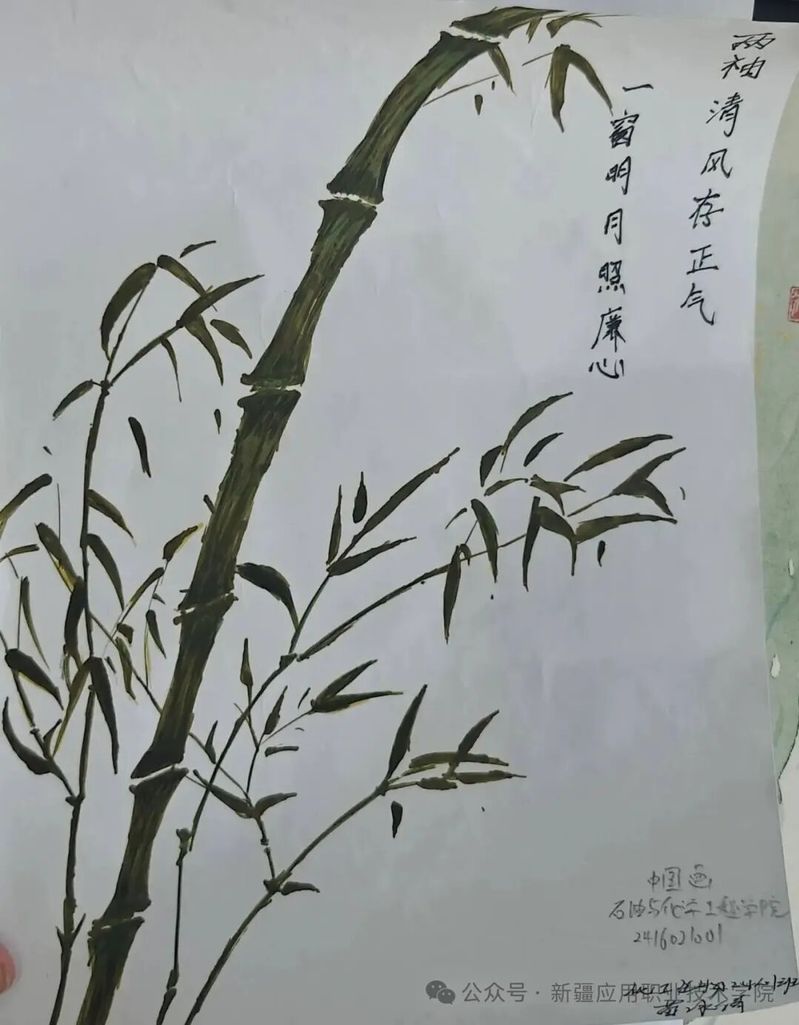 两袖清风存正气
一窗明月照廉心
中国画
石油与化学工程学院
2416021001
公众号·新疆应用职业技术学院